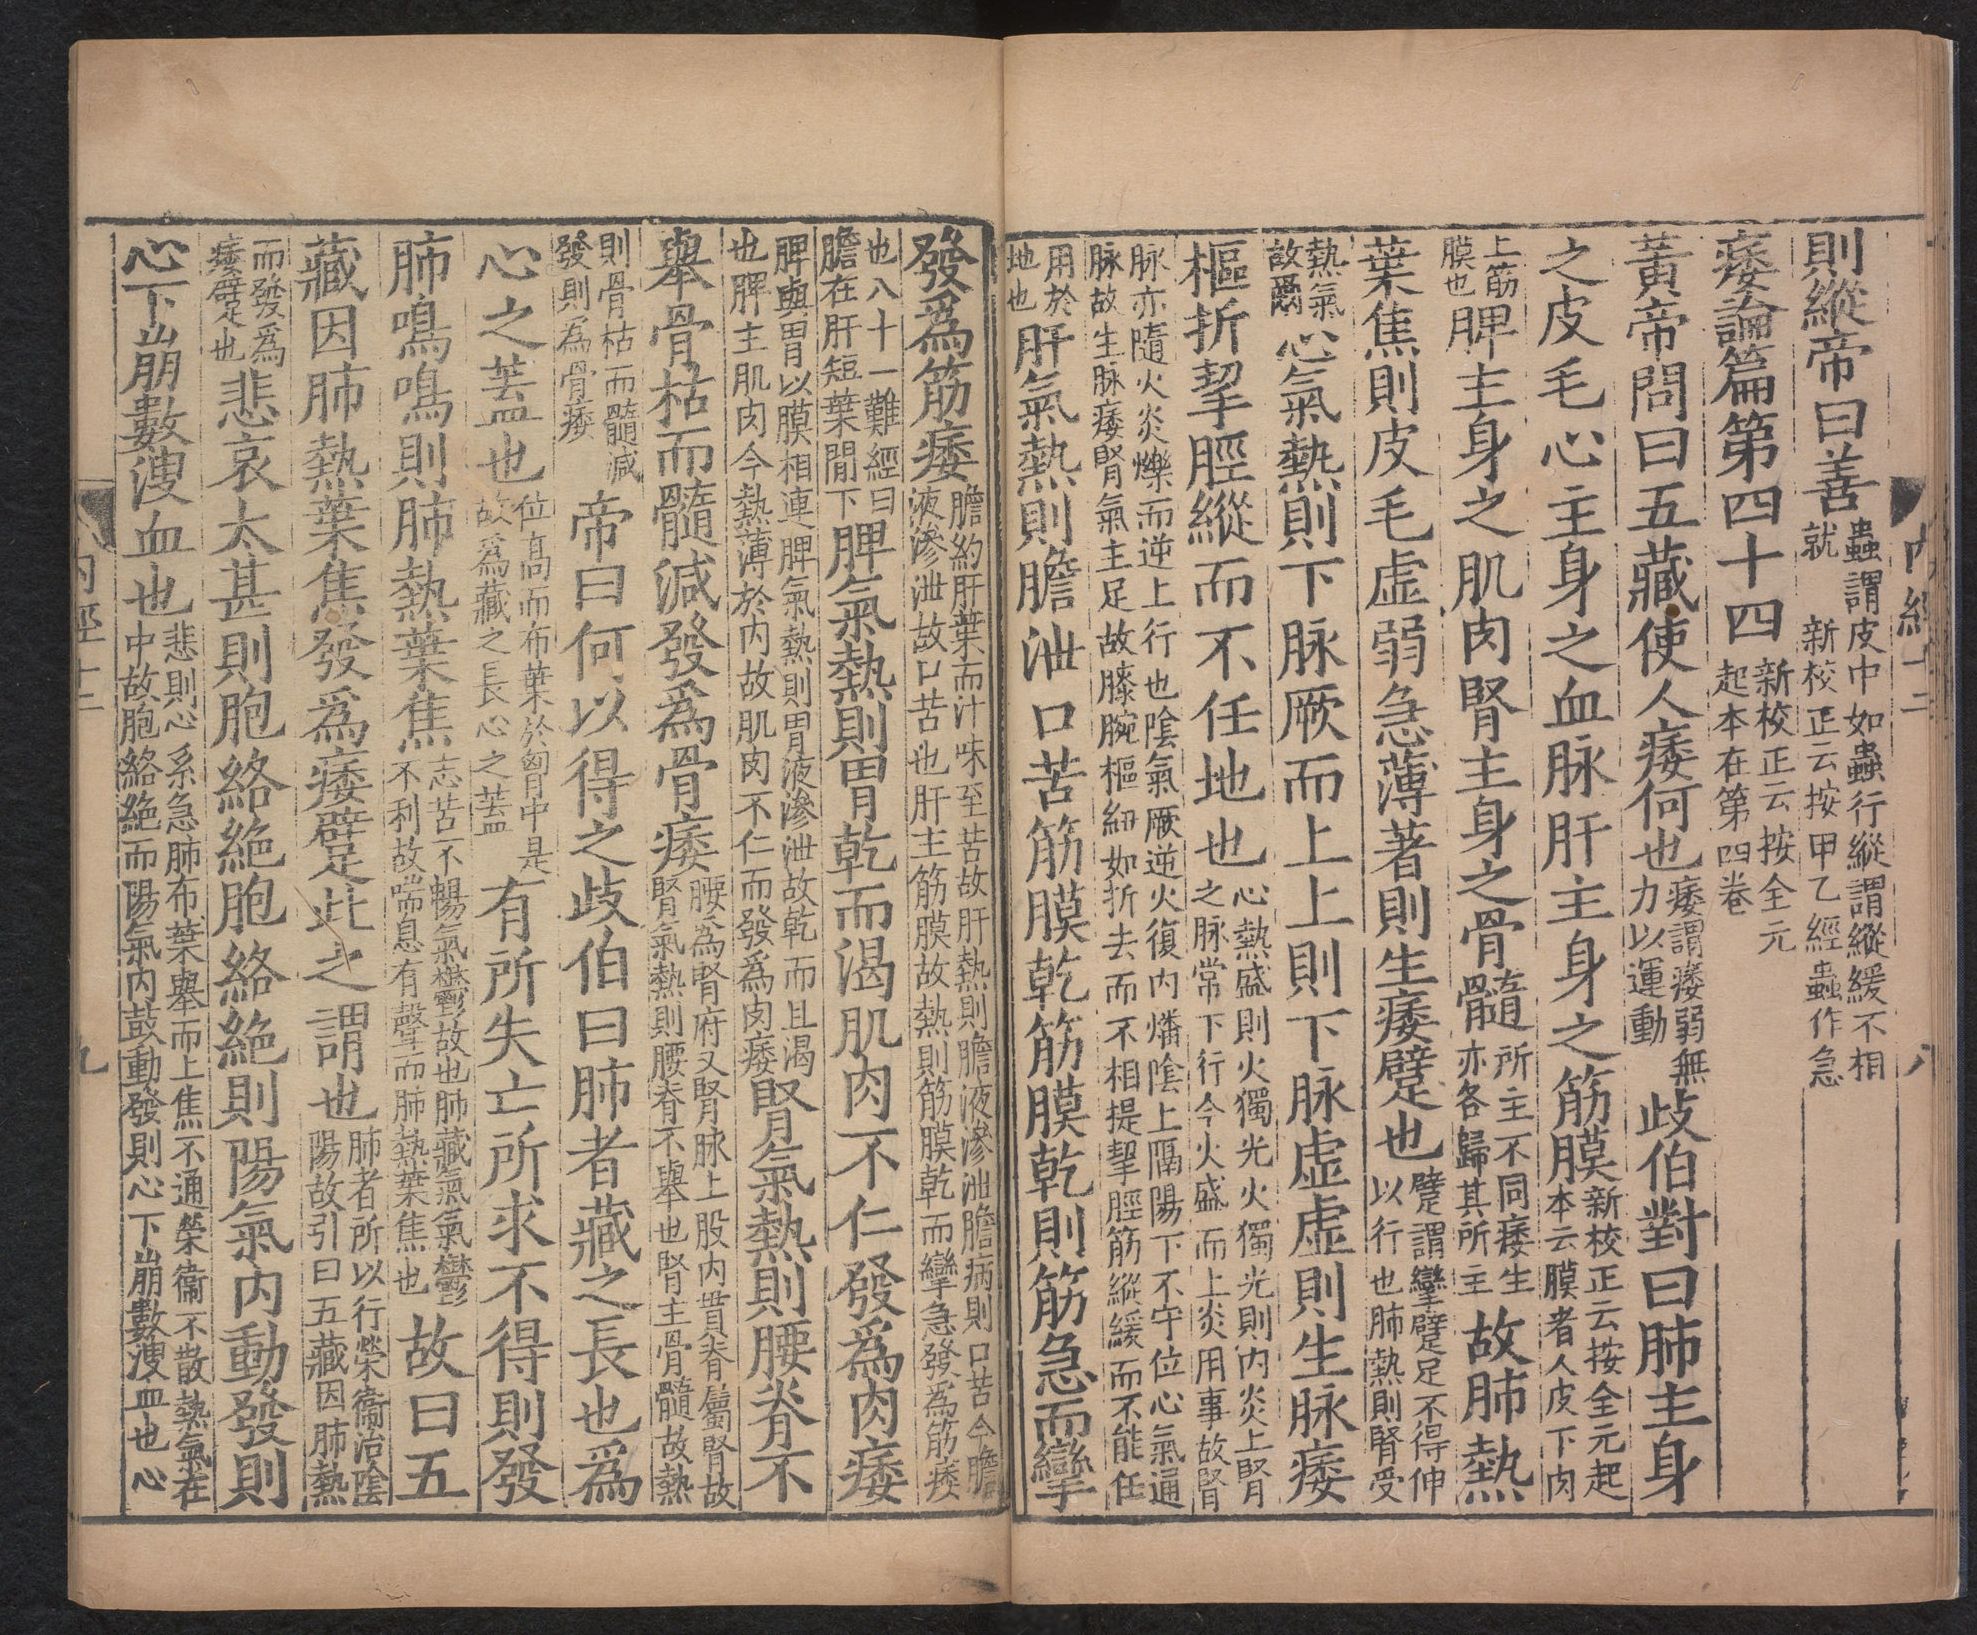 則縱帝曰善蟲謂皮中如蟲行縱謂縱緩不相就　新校正云按甲乙經蟲作急
痿論篇第四十四新校正云按全元起本在第四卷
黃帝問曰五藏使人痿何也痿謂痿弱無力以運動歧伯對曰肺主身
之皮毛心主身之血脉肝主身之筋膜新校正云按全元起本云膜者人皮下肉
上筋膜也脾主身之肌肉腎主身之骨髓所主不同痿生亦各歸其所主故肺熱
葉焦則皮毛虛弱急薄著則生痿躄也躄謂攣躄足不得伸以行也肺熱則腎受
熱氣故爾心氣熱則下脉厥而上上則下脉虛虛則生脉痿
樞折挈脛縱而不任地也心熱盛則火獨光火獨光則内炎上腎之脉常下行今火盛而上炎用事故腎
脉亦隨火炎爍而逆上行也陰氣厥逆火復内燔陰上隔陽下不守位心氣通脉故生脉痿腎氣主足故膝腕樞紐如折去而不相提挈脛筋縱緩而不能任
用於地也肝氣熱則膽泄口苦筋膜乾筋膜乾則筋急而攣
發爲筋痿膽約肝葉而汁味至苦故肝熱則膽液滲泄膽病則口苦今膽液滲泄故口苦也肝主筋膜故熱則筋膜乾而攣急發爲筋痿
也八十一難經曰膽在肝短葉閒下脾氣熱則胃乾而渴肌肉不仁發爲肉痿
脾與胃以膜相連脾氣熱則胃液滲泄故乾而且渴也脾主肌肉今熱薄於内故肌肉不仁而發爲肉痿腎氣熱則腰脊不
舉骨枯而髓減發爲骨痿腰爲腎府又腎脉上股内貫脊屬腎故腎氣熱則腰脊不舉也腎主骨髓故熱
則骨枯而髓減發則爲骨痿帝曰何以得之歧伯曰肺者藏之長也爲
心之蓋也位高而布葉於胷中是故爲藏之長心之蓋有所失亡所求不得則發
肺鳴鳴則肺熱葉焦志苦不暢氣鬱故也肺藏氣氣鬱不利故喘息有聲而肺熱葉焦也故曰五
藏因肺熱葉焦發爲痿躄此之謂也肺者所以行榮衞治陰陽故引曰五藏因肺熱
而發爲痿躄也悲哀太甚則胞絡絶胞絡絶則陽氣内動發則
心下崩數溲血也悲則心系急肺布葉舉而上焦不通榮衞不散熱氣在中故胞絡絶而陽氣内鼓動發則心下崩數溲血也心
内經十二
九
八